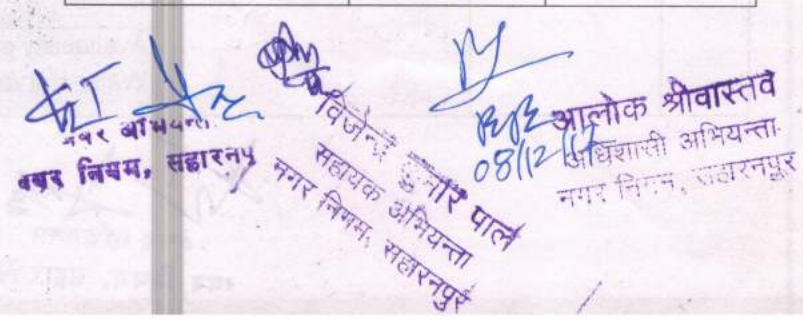 नगर अभियन्ता
नगर निगम, सहारनपु
विजेन्द्र कुमार पाल
सहायक अभियन्ता
नगर निगम, सहारनपुर
08/12/14
आलोक श्रीवास्तव
अधिशासी अभियन्ता
नगर निगम, सहारनपुर